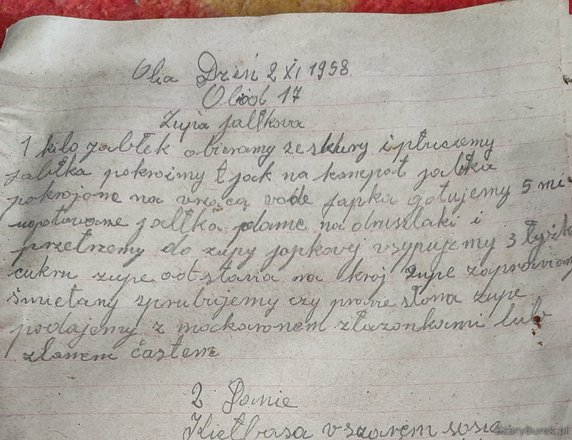 Dzień 2 XI 1958
Obiad 17
Zupa jabłkova
1 kilo jabłek obieramy ze skury i płuczemy
jabłka pokroimy t jak na kompot jabłka
pokrojone na vrzącą vode japka gotujemy 5 mi
ugotovane jabłka na druszlaki i
przetrzemy do zupy japkovej vsypujemy 3 łyszk
cukru zupe odstavia na kroj zupe zapravion
śmietany sprubujemy czy pravie słona zupe
podajemy z mackaronem złazonkami lub
2 Danie
Kiełbasa v szarem sosie
staryburek.pl